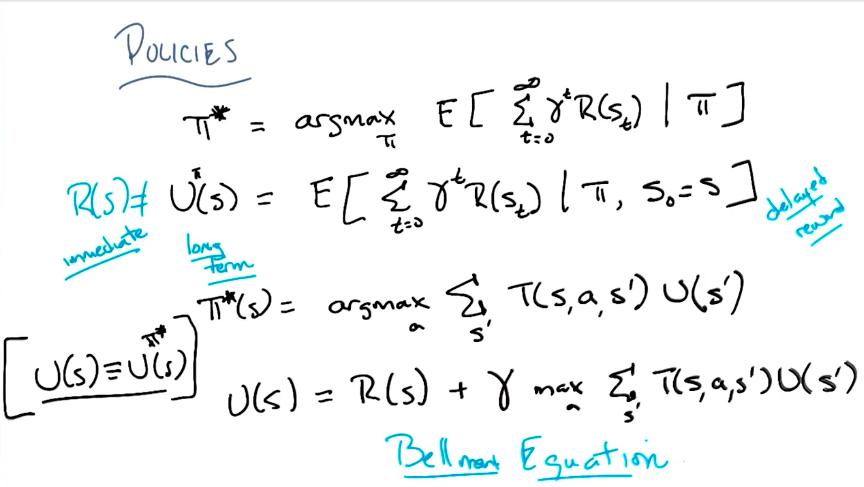 POLICIES
π* = argmax_π E[ ∑_{t=0}^{∞} γ^t R(s_t) | π ]
R(s) ≠ U^π(s) = E[ ∑_{t=0}^{∞} γ^t R(s_t) | π, s_0 = s ] delayed reward
immediate long term
π*(s) = argmax_a ∑_{s'} T(s,a,s') U(s')
[ U(s) ≡ U^{π*}(s) ]
U(s) = R(s) + γ max_a ∑_{s'} T(s,a,s') U(s')
Bellman Equation